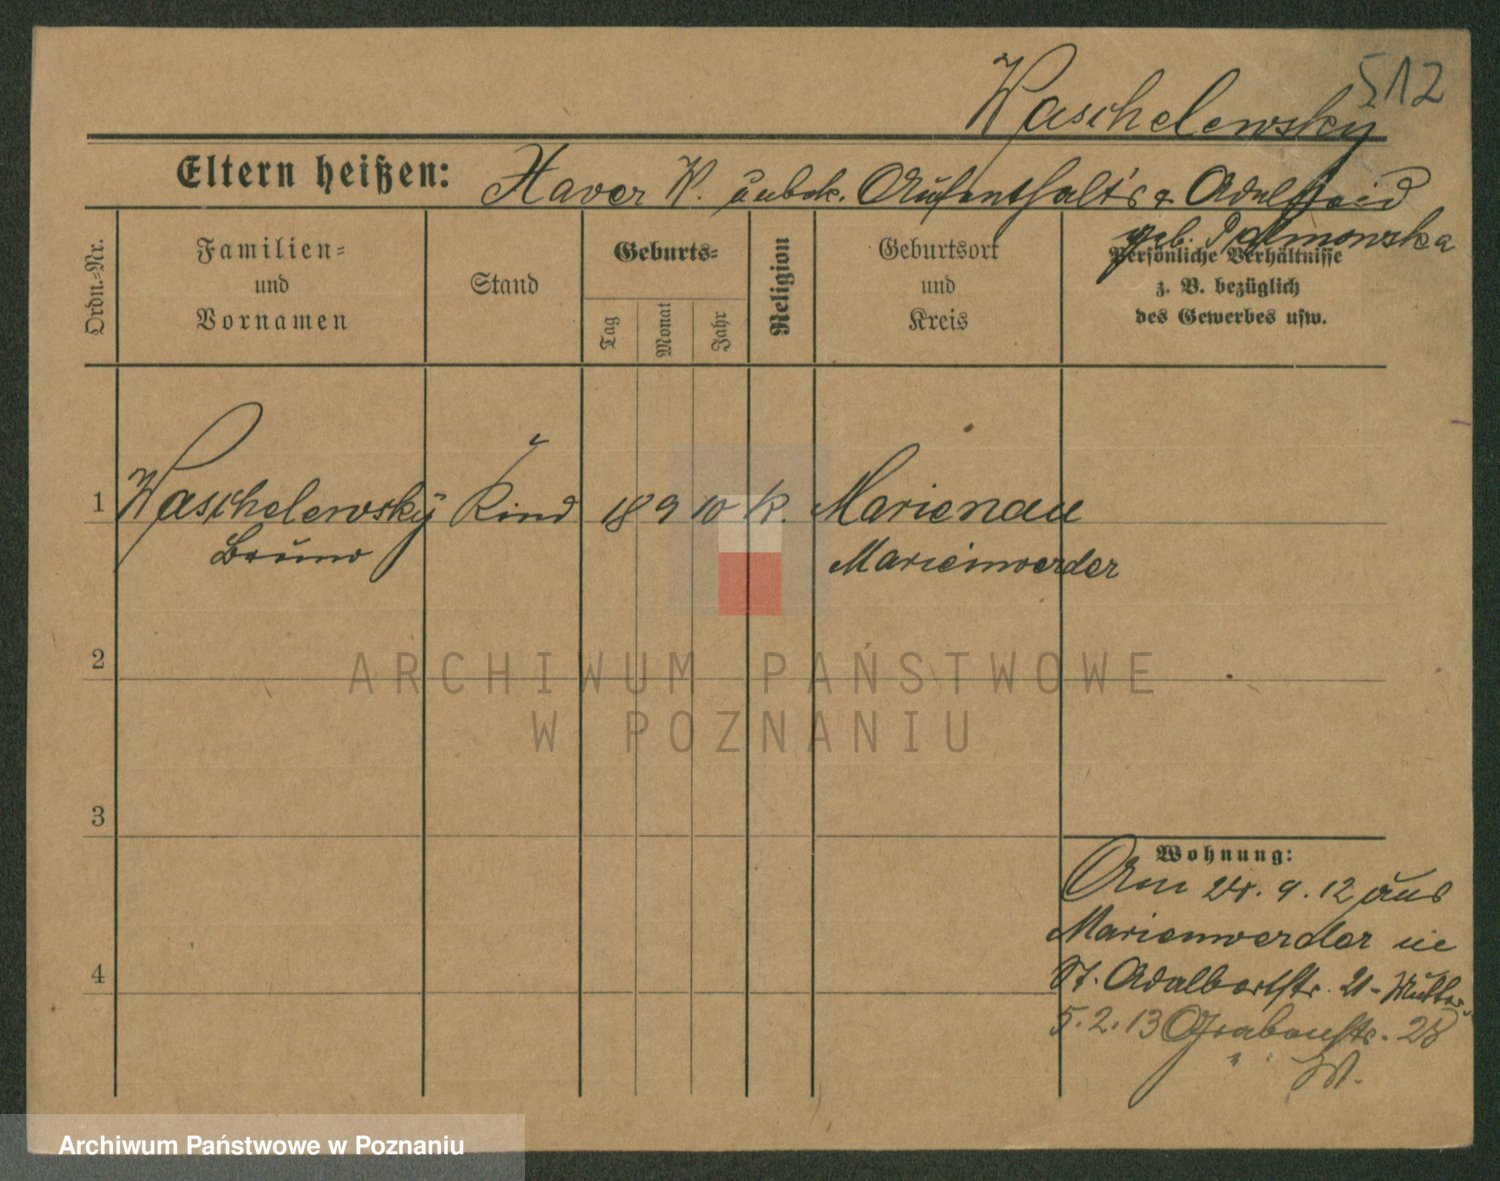 512
Waschelewsky
Eltern heißen: Xaver W. unbek. Aufenthalt's & Adelheid
geb.
Ordn.-Nr.
Familien-
und
Vornamen
Stand
Geburts-
Tag
Monat
Jahr
Religion
Geburtsort
und
Kreis
Persönliche Verhältnisse
z. B. bezüglich
des Gewerbes usw.
1 Waschelewsky Kind 18 9 10 K. Marienau
Bruno Marienwerder
2
3
4
Wohnung:
Am 24. 9. 12 aus
Marienwerder in
St. Adalbertstr. 21 - Mutter
5. 2. 13 Grabenstr. 28
" " W.
ARCHIWUM PAŃSTWOWE
W POZNANIU
Archiwum Państwowe w Poznaniu